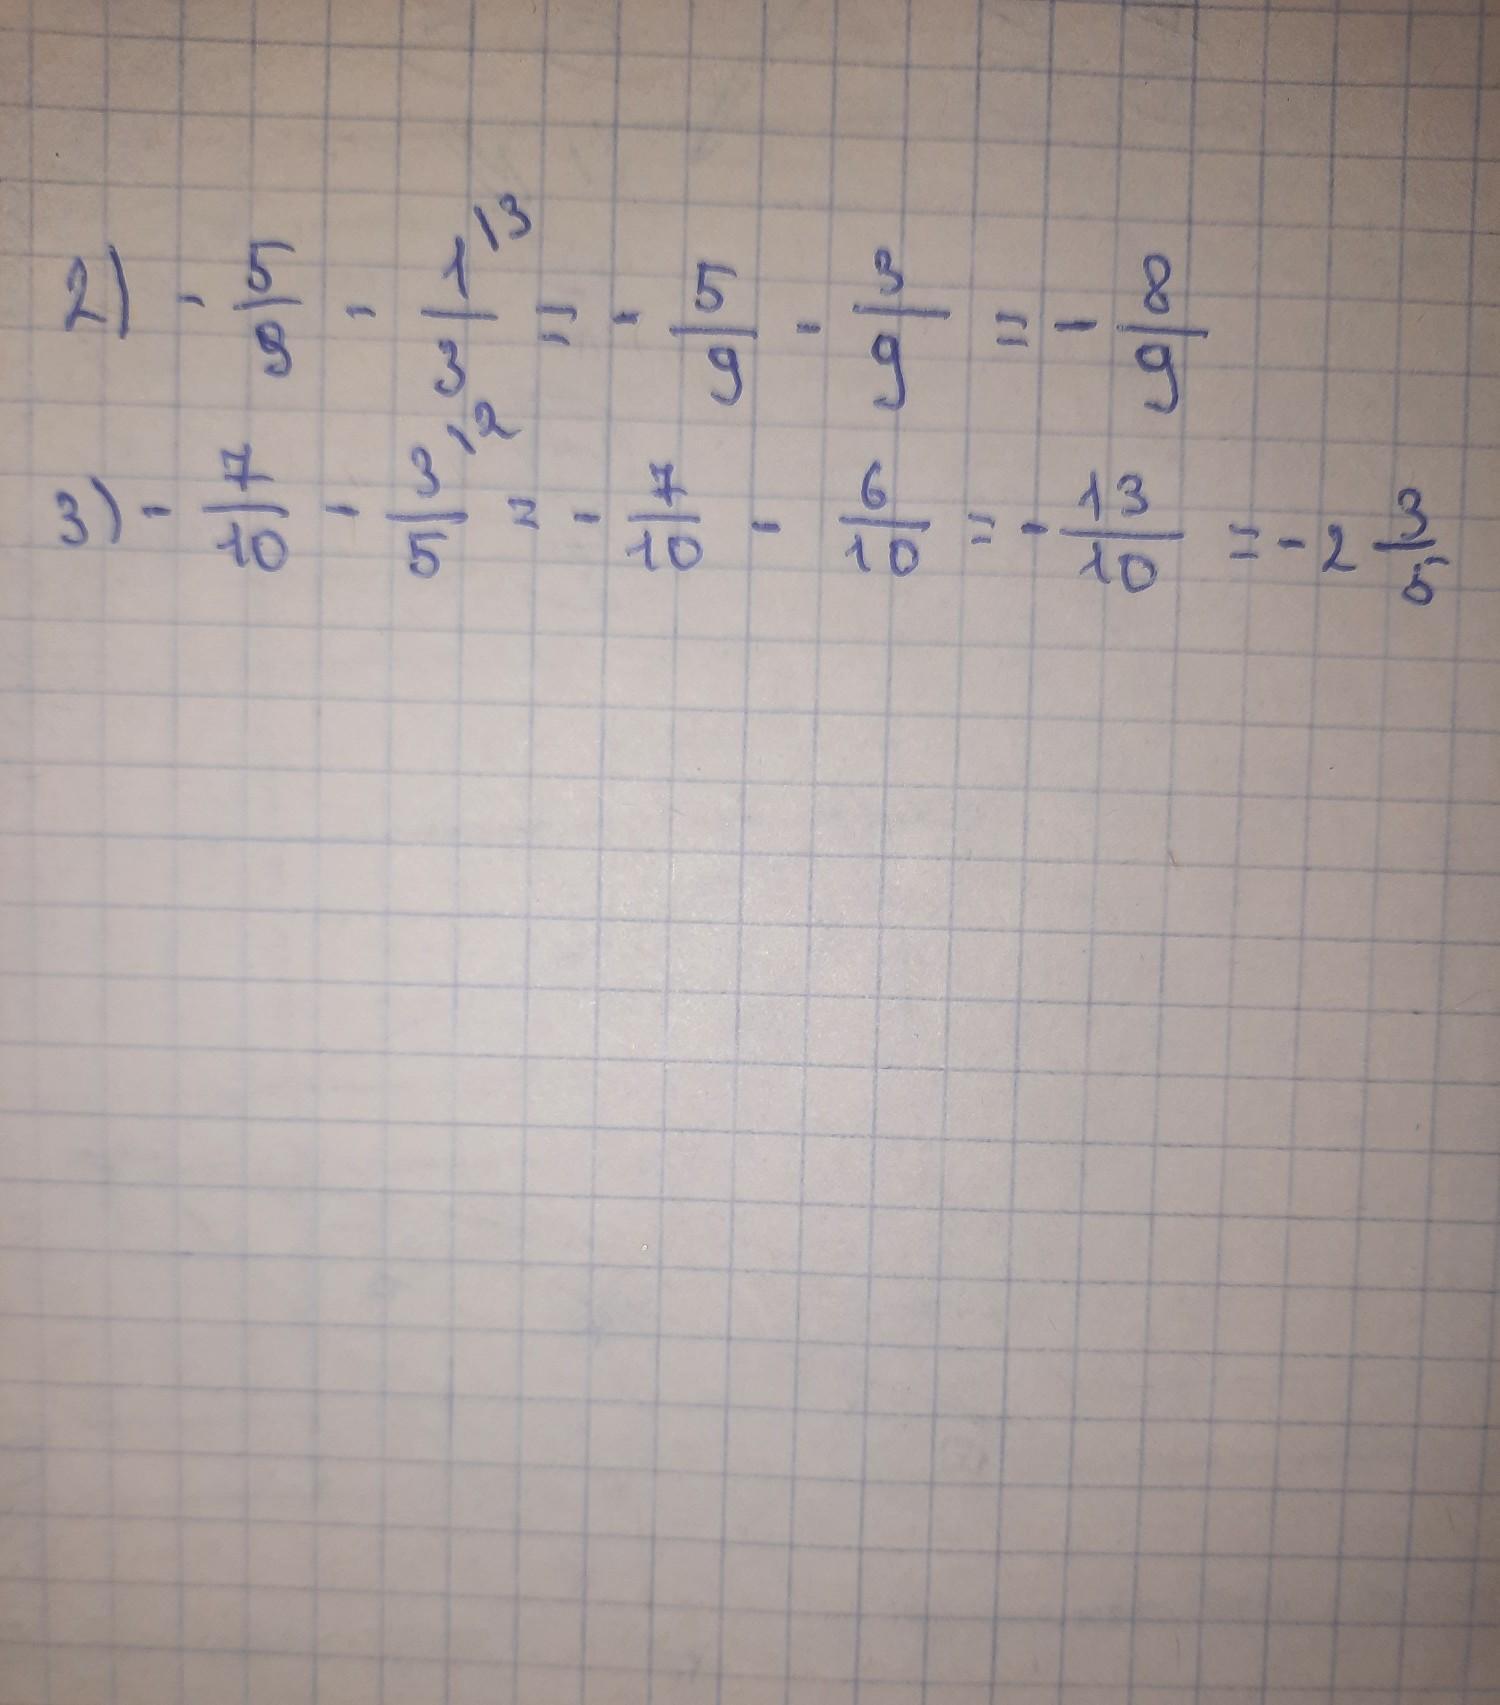 2) - 5/9 - 1\3/3 = - 5/9 - 3/9 = - 8/9
3) - 7/10 - 3\2/5 = - 7/10 - 6/10 = - 13/10 = - 2 3/5